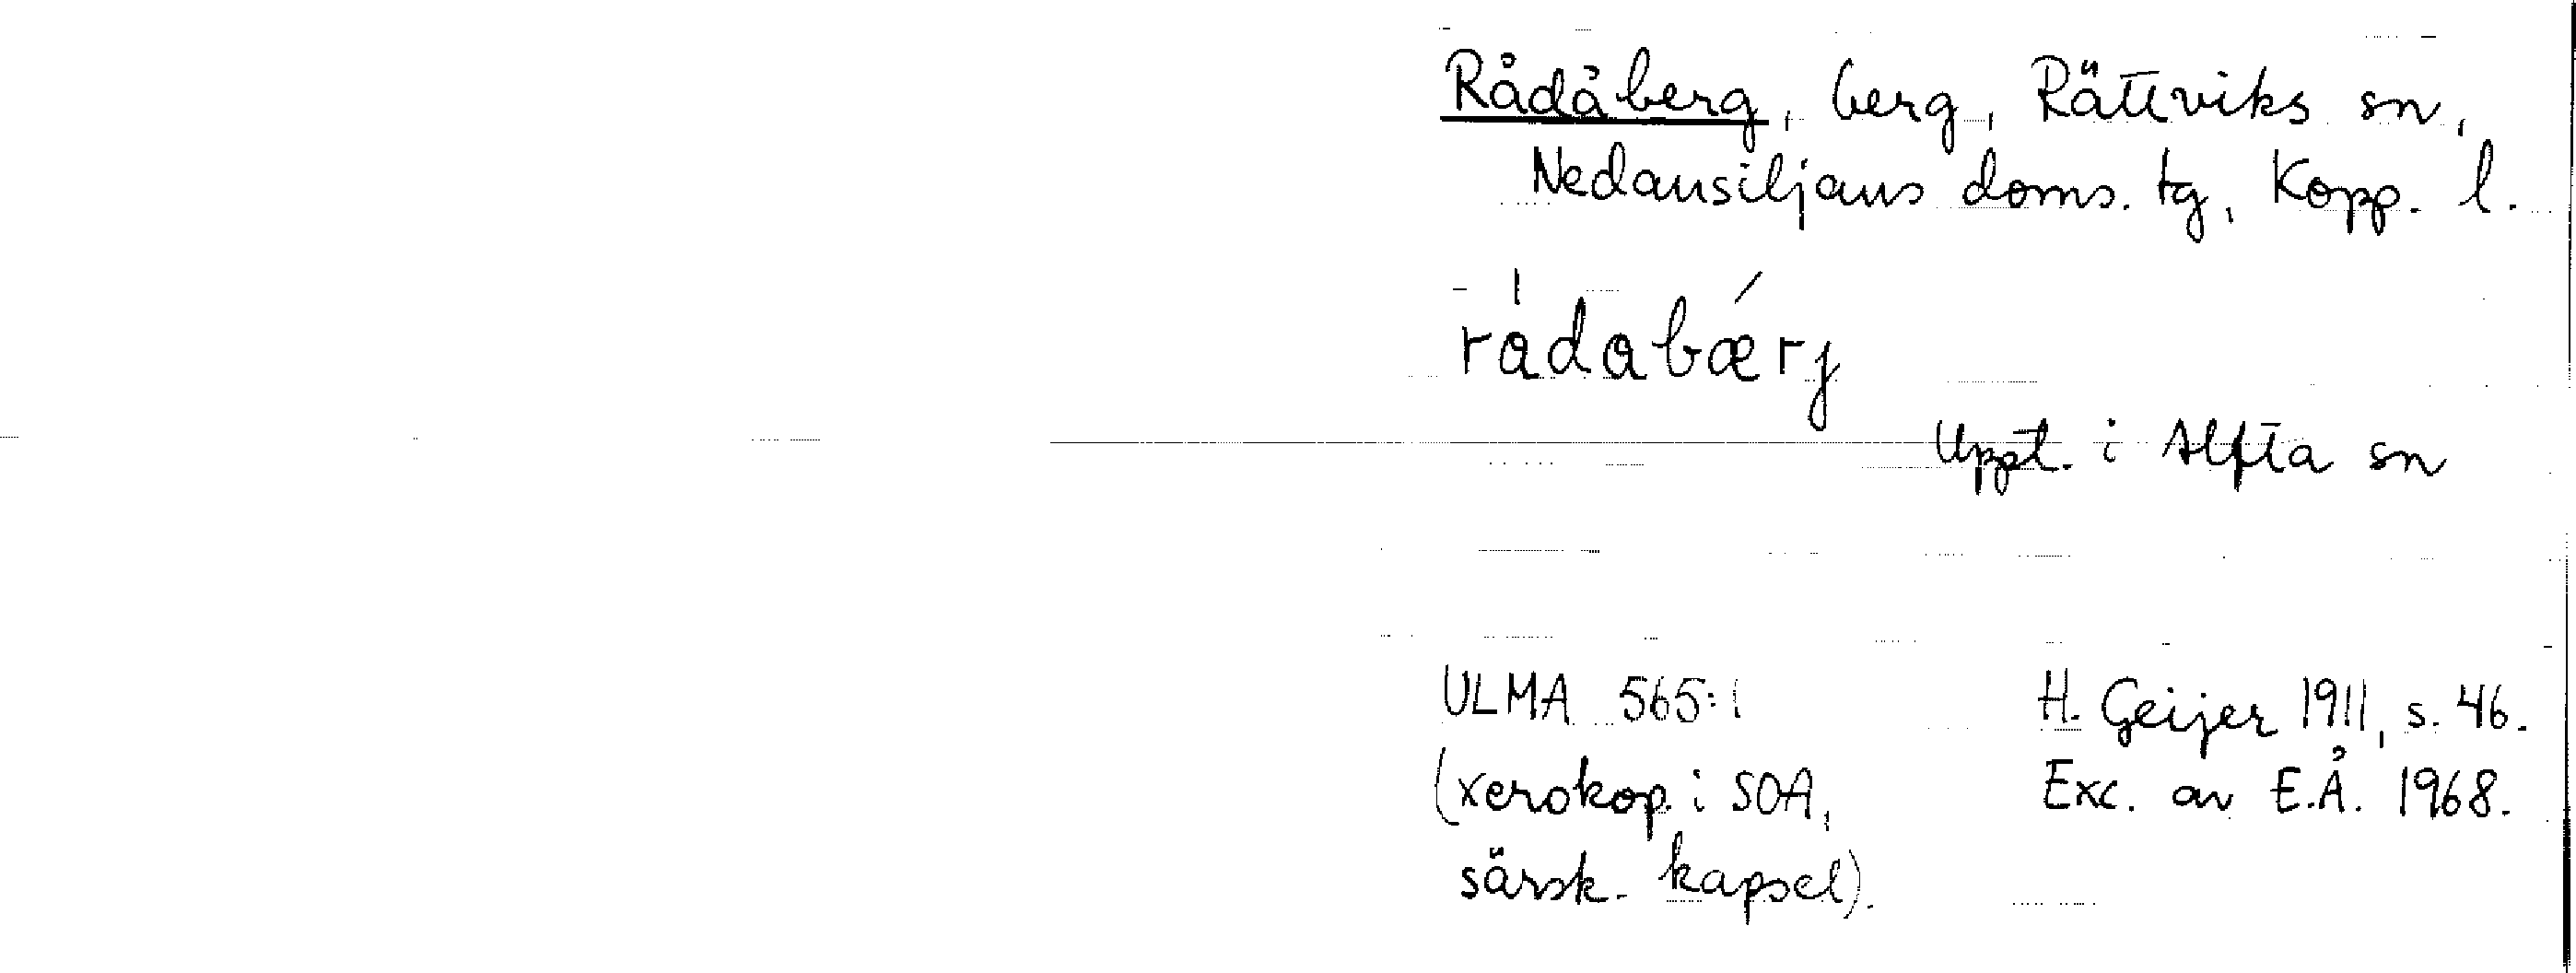 Rådåberg, berg, Rättviks sn,
Nedansiljans doms. tg, Kopp. l.
rådabærj
Uppt. i Alfta sn
ULMA 565:1 H. Geijer 1911, s. 46.
(xerokop. i SOA, Exc. av E.Å. 1968.
särsk. kapsel).